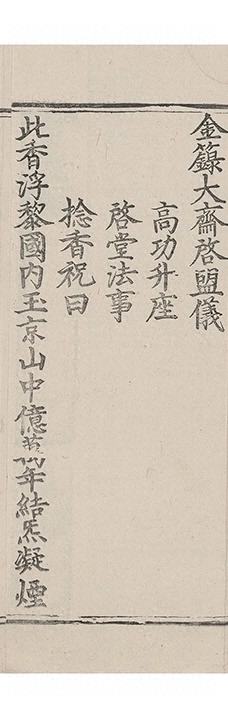 金籙大齋啓盟儀
高功升座
啓堂法事
捻香祝曰
此香浮黎國內玉京山中億萬年結炁凝煙